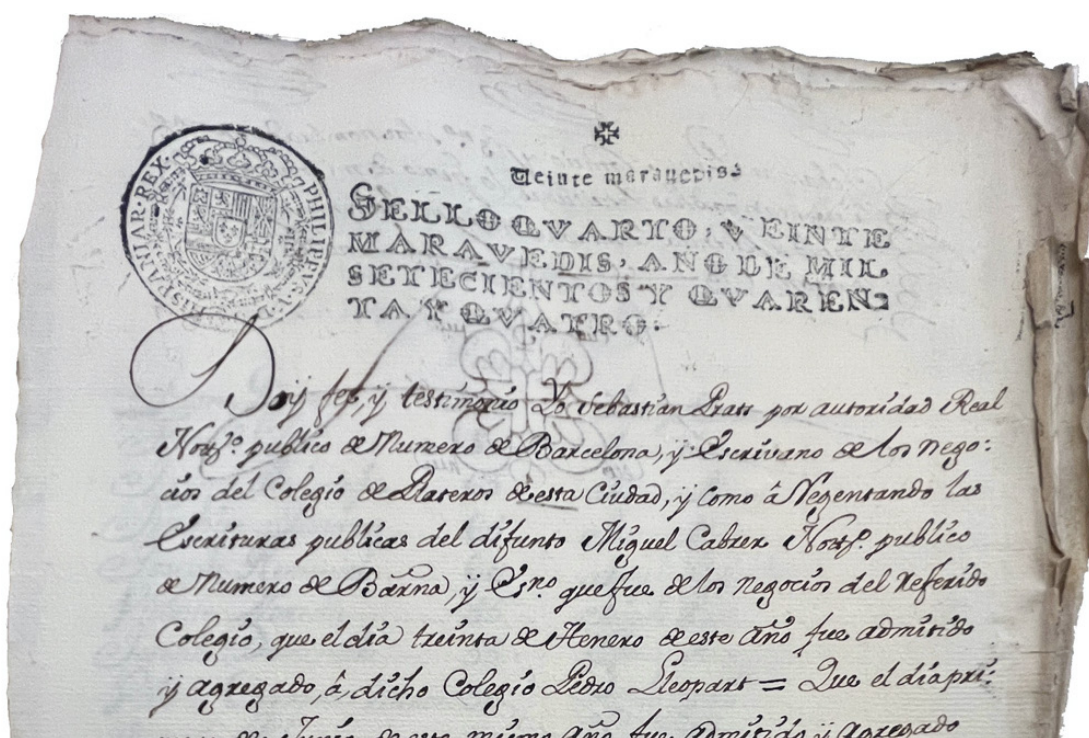 HISPANIAR·REX· PHILIPPVS·V·
Veinte marauedis
SELLO QVARTO, VEINTE
MARAVEDIS, AÑO DE MIL
SETECIENTOS Y QVAREN-
TA Y QVATRO.
Doy fee, y testimonio Yo Sebastian Prats por autoridad Real
Nott.º publico de Numero de Barcelona, y Escrivano de los nego:
cios del Colegio de Plateros de esta Ciudad, y como â Regentando las
Escrituras publicas del difunto Miguel Cabrer Nott.º publico
de Numero de Barna, y Esno. que fue de los negocios del Referido
Colegio, que el dia treinta de Henero de este año fue admitido
y agregado, â, dicho Colegio Pedro Lleopart = Que el dia pri:
de Junio de este mismo año fue admitido y agregado